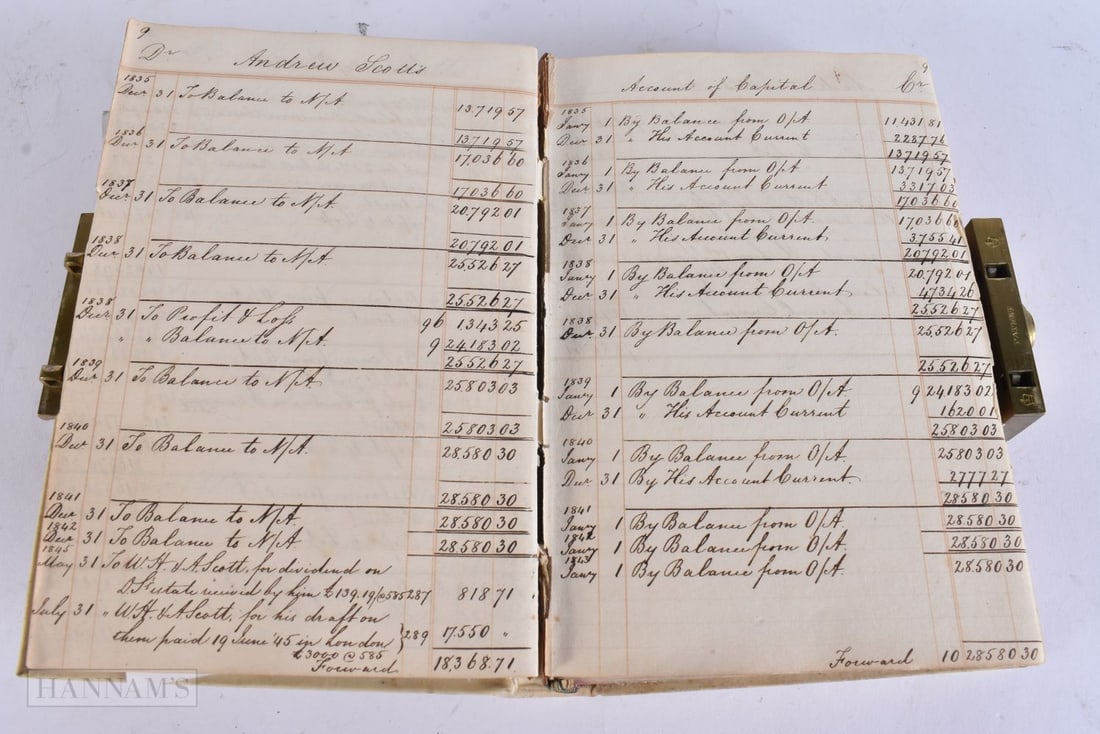 9
Dr Andrew Scott's
1835
Decr 31 To Balance to N/A 13.719 57
13719 57
1836
Decr 31 To Balance to N/A 17.036 60
17.036 60
1837
Decr 31 To Balance to N/A 20.792 01
20.792 01
1838
Decr 31 To Balance to N/A 25.526 27
25.526 27
1838
Decr 31 To Profit & Loss 96 1343 25
" " Balance to N/A. 9 24.183 02
25526 27
1839
Decr 31 To Balance to N/A 25.803 03
25.803 03
1840
Decr 31 To Balance to N/A. 28.580 30
28.580 30
1841
Decr 31 To Balance to N/A. 28.580 30
1842
Decr 31 To Balance to N/A. 28.580 30
1845
May 31 To W.H. & A Scott, for dividend on
Ds estate received by him £139.19/@585 287 818 71
July 31 " W.H. & A Scott, for his draft on
them paid 19 June '45 in London } 289 17.550 "
£3000 @ 585
Forward 18.368.71
9
Account of Capital Cr
1835
Jany 1 By Balance from O/A 11.431 81
Decr 31 " His Account Current 2287 76
13719 57
1836
Jany 1 By Balance from O/A 13.719 57
Decr 31 " His Account Current 3317 03
17.036 60
1837
Jany 1 By Balance from O/A. 17.036 60
Decr 31 " His Account Current, 3.755 41
20792 01
1838
Jany 1 By Balance from O/A 20.792 01
Decr 31 " His Account Current 4734 26
25.526 27
1838
Decr 31 By Balance from O/A. 25.526 27
25.526 27
1839
Jany 1 By Balance from O/A. 9 24183 02
Decr 31 " His Account Current 1620 01
25803 03
1840
Jany 1 By Balance from O/A 25803 03
Decr 31 By His Account Current. 2777 27
28580 30
1841
Jany 1 By Balance from O/A. 28.580 30
1842
Jany 1 By Balance from O/A. 28.580 30
1843
Jany 1 By Balance from O/A. 28.580 30
Forward 10 28580 30
HANNAM'S